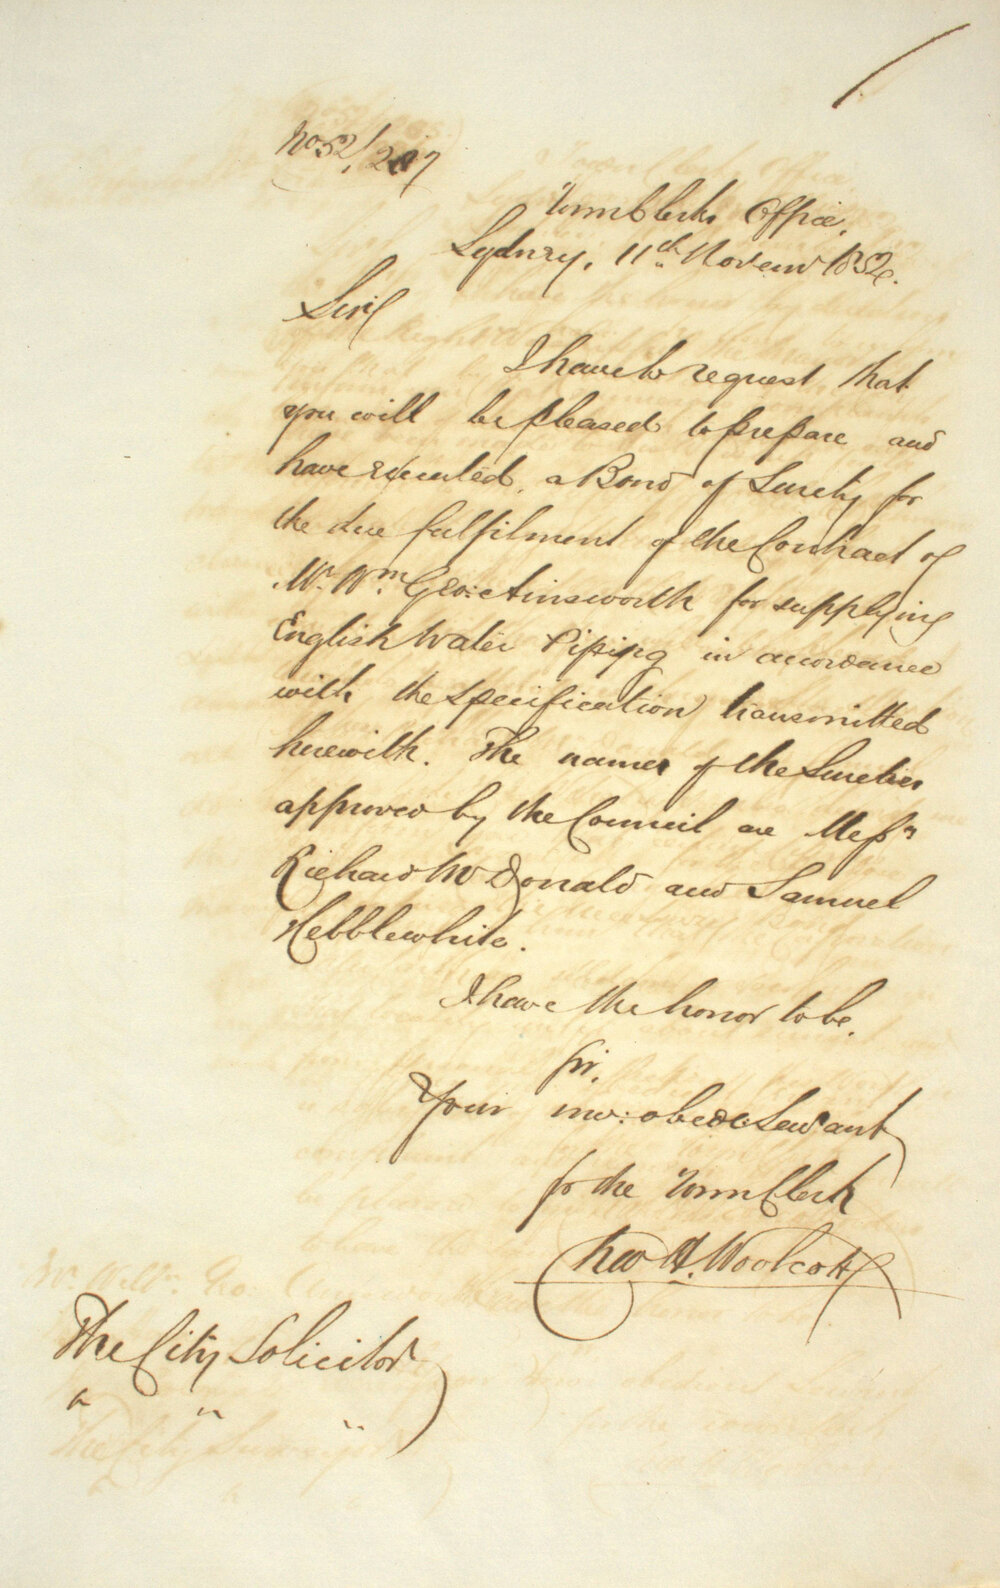 No 52/217
Town Clerks Office,
Sydney, 11th Novemr 1852.
Sir,
I have to request that
you will be pleased to prepare and
have executed, a Bond of Surety for
the due fulfilment of the Contract of
Mr. Wm. Geo: Ainsworth for supplying
English Water Piping in accordance
with the specification transmitted
herewith. The names of the Sureties
approved by the Council are Messrs
Richard McDonald and Samuel
Hebblewhite.
I have the honor to be,
Sir,
Your mo: obedt. Servant
for the Town Clerk
H. Woolcott
The City Solicitor
" " "